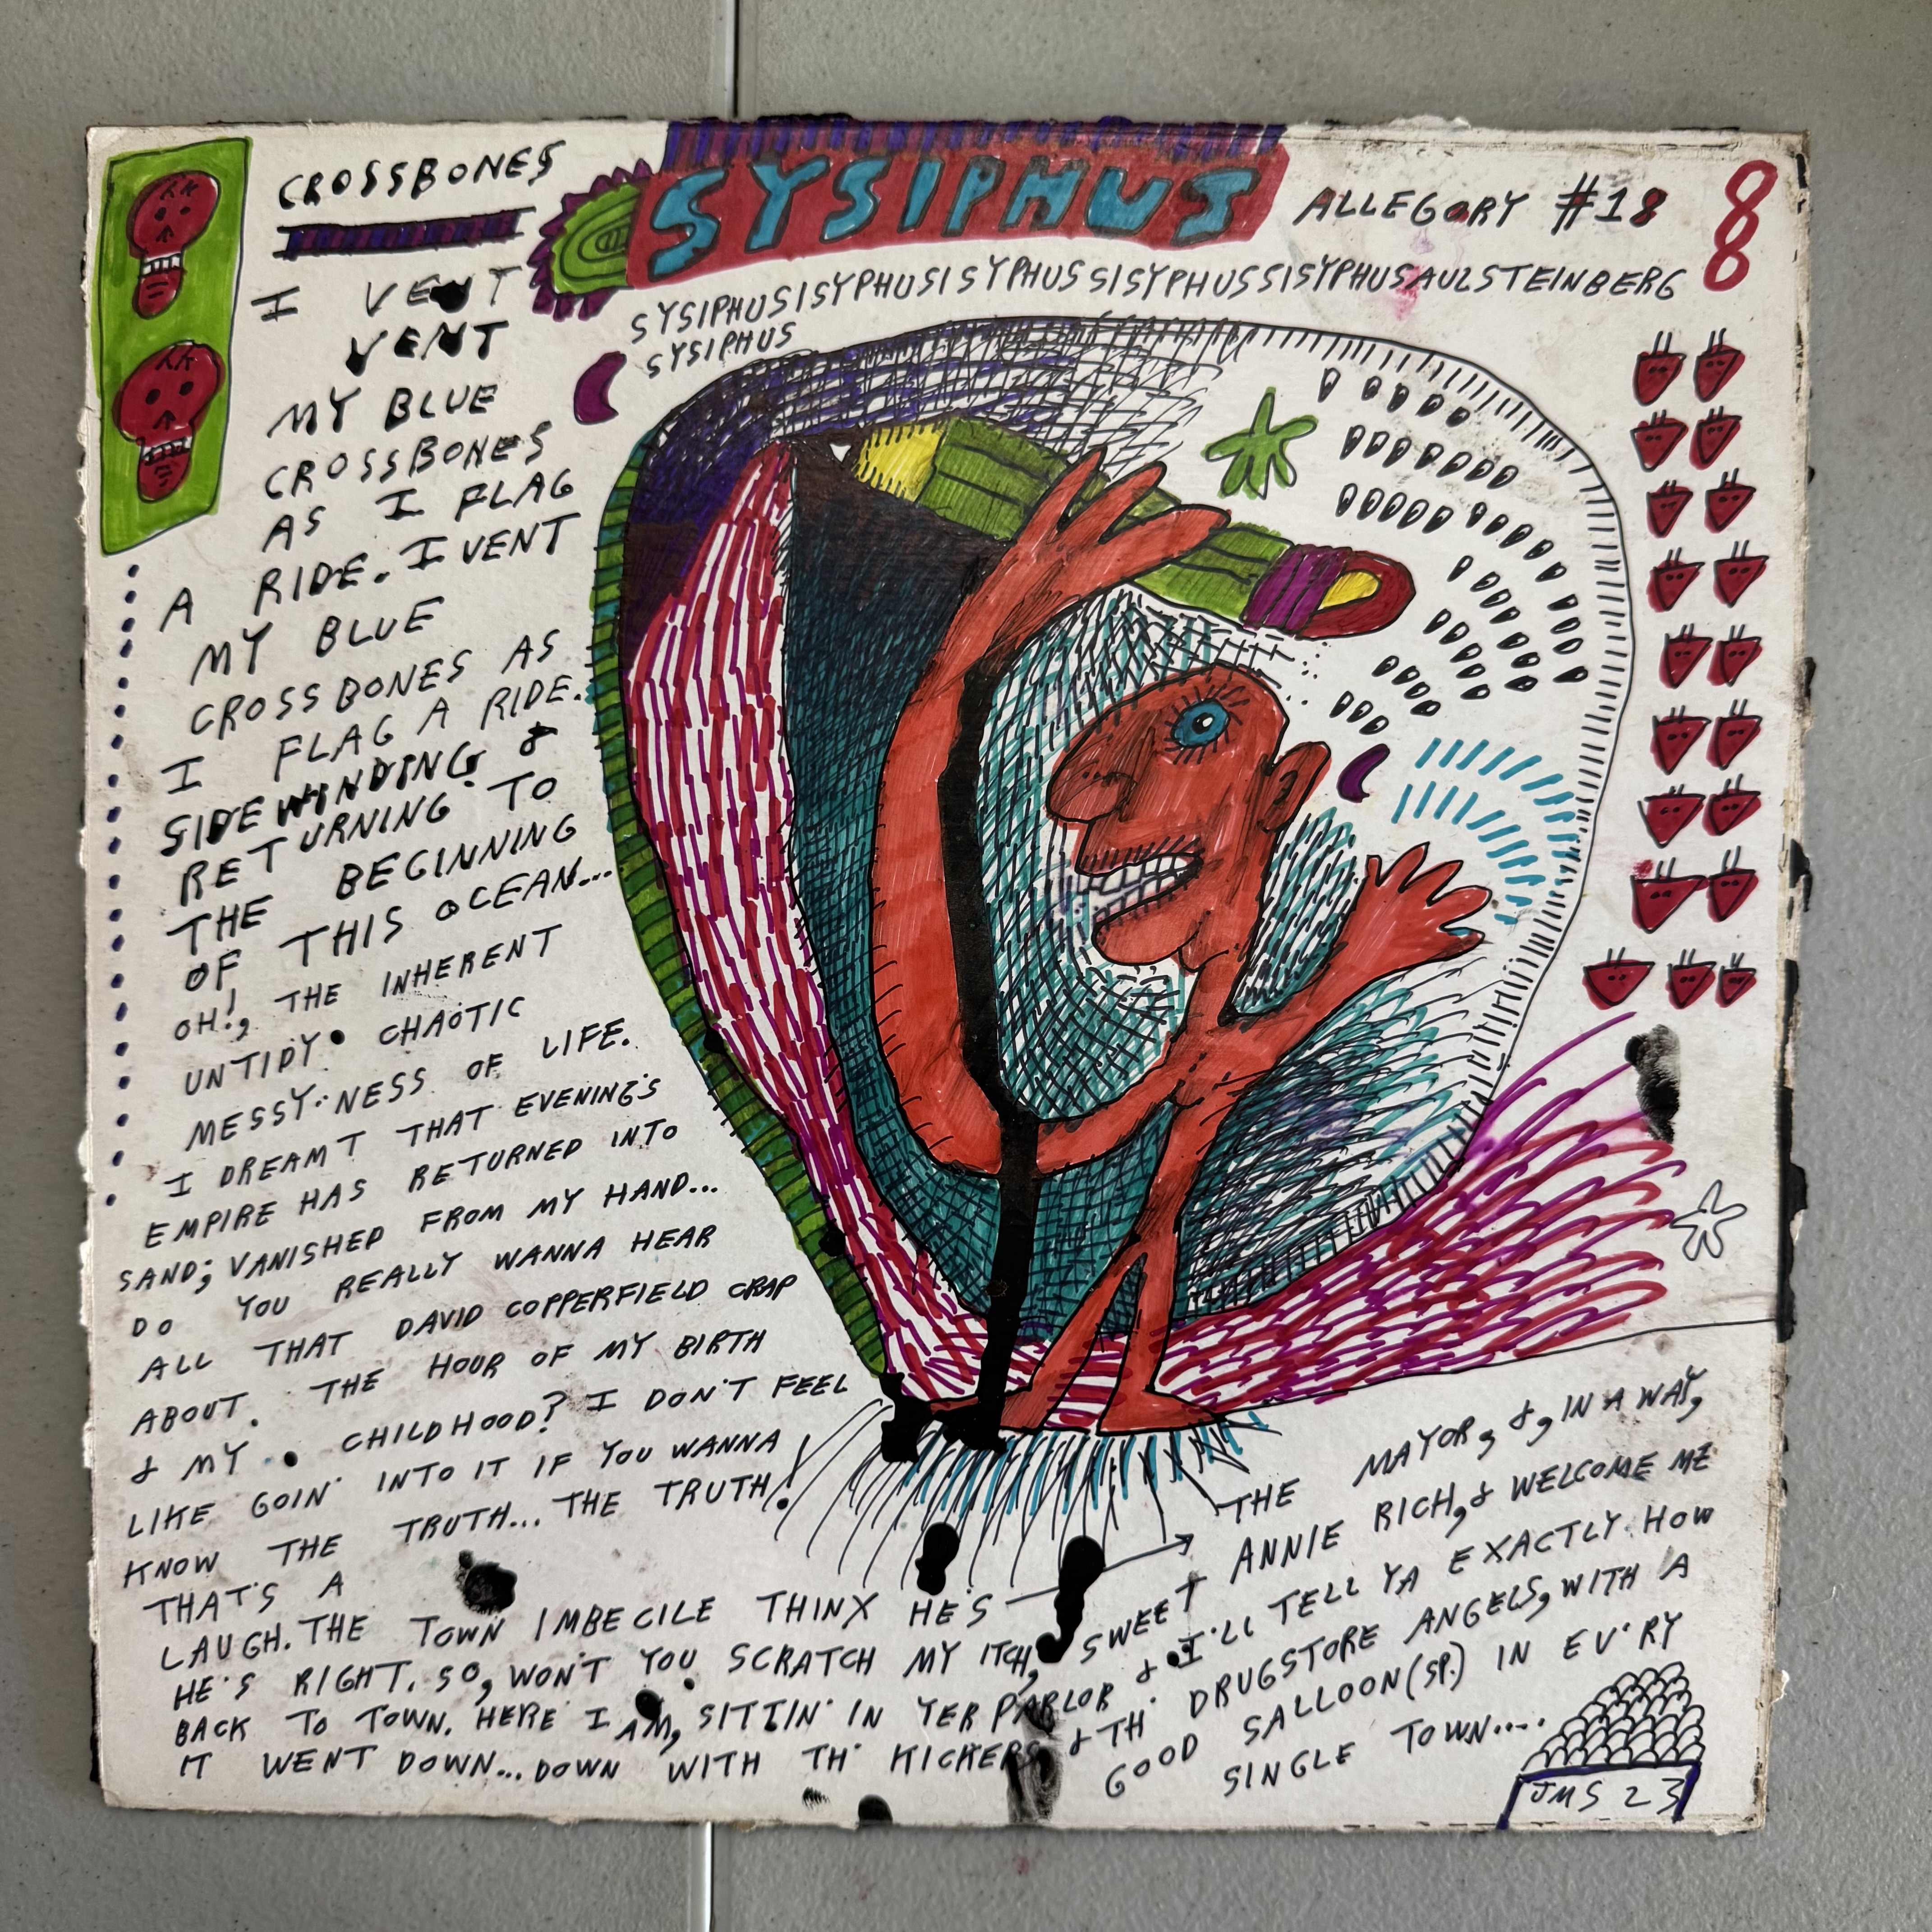 CROSSBONES
SYSIPHUS
ALLEGORY #18
8
8
SYSIPHUSISYPHUSISYPHUSSISYPHUSSISYPHUSAULSTEINBERG
SYSIPHUS
I VENT
VENT
MY BLUE
CROSSBONES
AS I FLAG
A RIDE. I VENT
MY BLUE
CROSSBONES AS
I FLAG A RIDE.
SIDEWINDING &
RETURNING TO
THE BEGINNING
OF THIS OCEAN...
OH!, THE INHERENT
UNTIDY CHAOTIC
MESSY-NESS OF LIFE.
I DREAMT THAT EVENING'S
EMPIRE HAS RETURNED INTO
SAND; VANISHED FROM MY HAND...
DO YOU REALLY WANNA HEAR
ALL THAT DAVID COPPERFIELD CRAP
ABOUT. THE HOUR OF MY BIRTH
& MY CHILDHOOD? I DON'T FEEL
LIKE GOIN' INTO IT IF YOU WANNA
KNOW THE TRUTH... THE TRUTH!
THAT'S A
LAUGH. THE TOWN IMBECILE THINX HE'S
THE MAYOR, &, IN A WAY,
HE'S RIGHT. SO, WON'T YOU SCRATCH MY ITCH, SWEET ANNIE RICH, & WELCOME ME
BACK TO TOWN. HERE I AM, SITTIN' IN YER PARLOR & I'LL TELL YA EXACTLY HOW
IT WENT DOWN... DOWN WITH TH' KICKERS, & TH' DRUGSTORE ANGELS, WITH A
GOOD SALLOON (SP.) IN EV'RY
SINGLE TOWN....
JMS 23